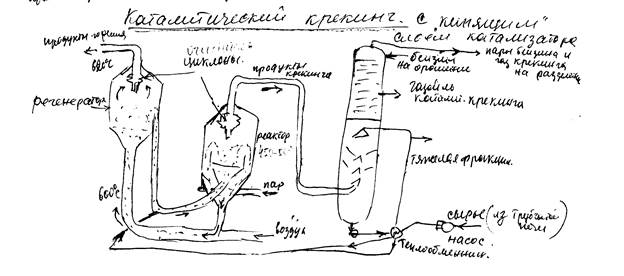 Каталитический крекинг с "кипящим"
слоем катализатора
продукты горения
680°
циклоны
продукты
крекинга
бензин
на орошение
пары бензина и
газ крекинга
на разделение
газойль
каталит. крекинга
регенератор
реактор
тяжелая фракция
600°
пар
воздух
сырье (из трубчатой
печи)
насос
теплообменник